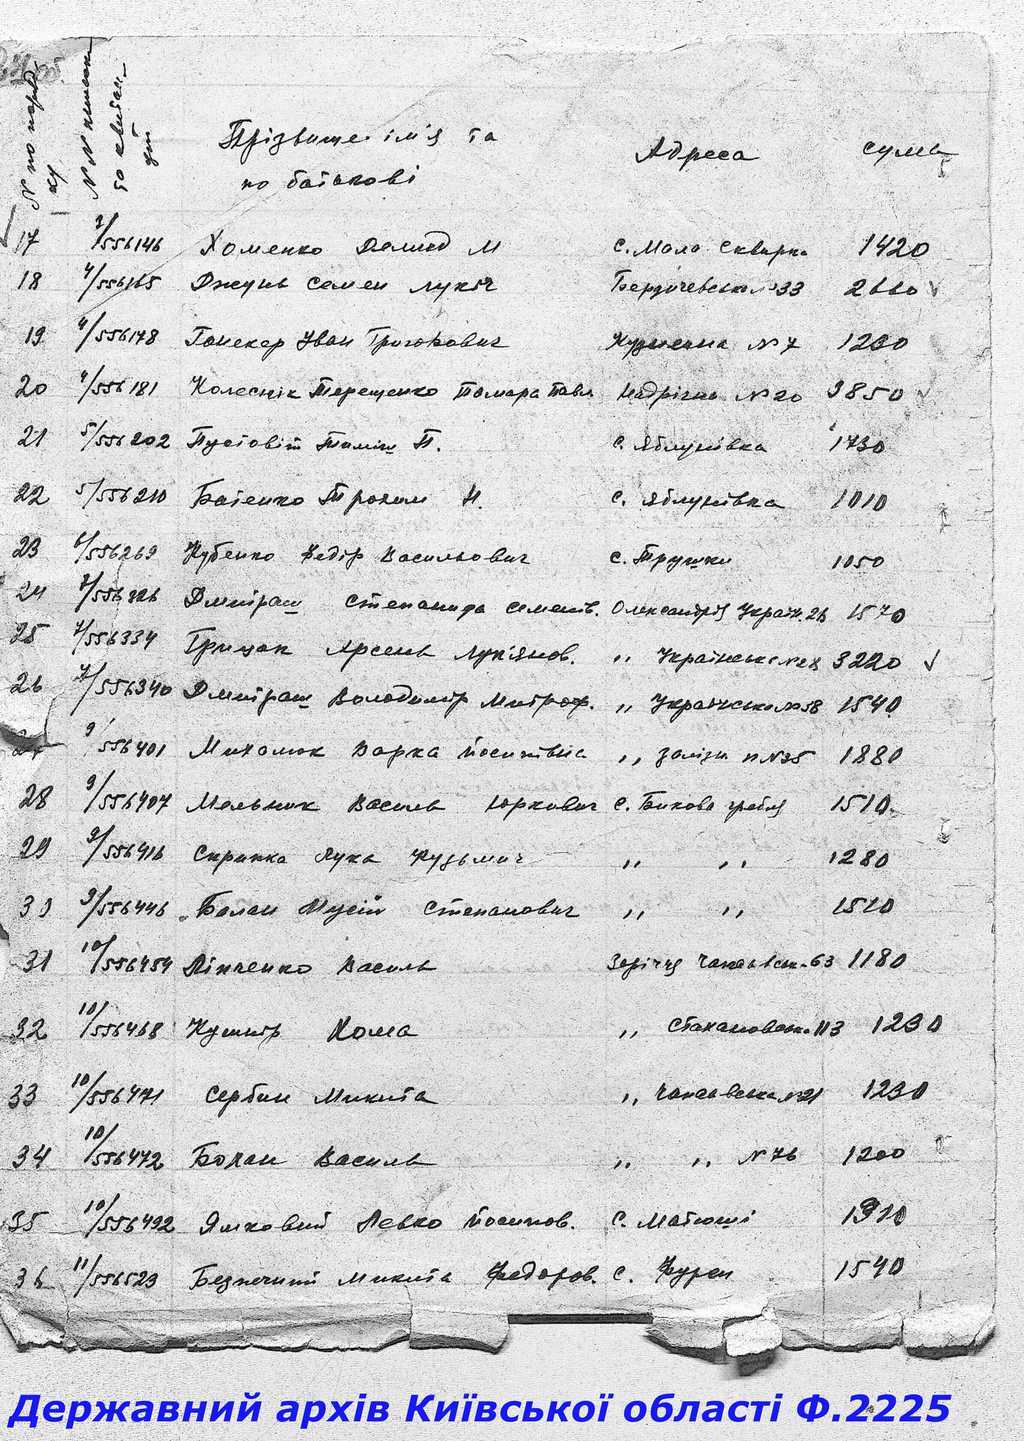 Прізвище ім'я та по батькові Адреса сума
17 3/556146 Хоменко М с. Мала Сквирка 1420
18 4/556165 Джунь Семен Лукіч Бердичевська 33
19 4/556178 Іван Григорович № 7
20 4/556181 Колеснік Терещенко Тамара Павл Надрічна № 20 3850
21 5/556202 Пустовіт Тиміш П. с. Яблунівка 1730
22 5/556210 Батенко Трохим с. Яблунівка 1010
23 6/556269 Кубенко Федір Васильович с. Трушки 1050
24 Дмитраш Степанида Семенів. Олександрія Україн. 26 1570
25 7/556334 Грицак Арсень Лук'янов. ,, Українська 3220
26 7/556340 Дмитраш Володимір Митроф. ,, Українська № 58 1540
9/556401 Михалюк Варка Йосипівна ,, 1880
28 9/556407 Мельник Василь Юркович с. Бикова гребля 1510
29 9/556416 Скрипка Лука Кузьмич ,, ,, 1280
30 9/556446 Балан Мусій Степанович ,, ,, 1510
31 10/556454 Лінченко Василь Зарічча Чапаєвськ. 63 1180
32 10/556468 Кушнір Хома ,, Стахановськ. 113 1230
33 10/556471 Сербин Микита ,, Чапаєвська № 21 1230
34 10/556472 Болан Василь ,, ,, № 76 1200
35 10/556492 Ямковий Левко Йосипов. с. Матюші 1310
36 11/556523 Безпечний Микита Федоров. с. Фурси 1540
Державний архів Київської області Ф.2225